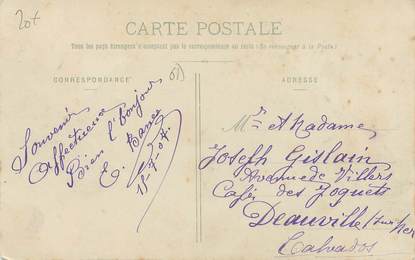 20+
CARTE POSTALE
Tous les pays étrangers n'acceptent pas la correspondance au recto (Se renseigner à la Poste)
CORRESPONDANCE
ADRESSE
Souvenir
Affectueux
Bien l'bonjour
E.
Mr et Madame
Joseph Gislain
Avenue de Villers
Café des Zoquets
Deauville s/ur Mer
Calvados